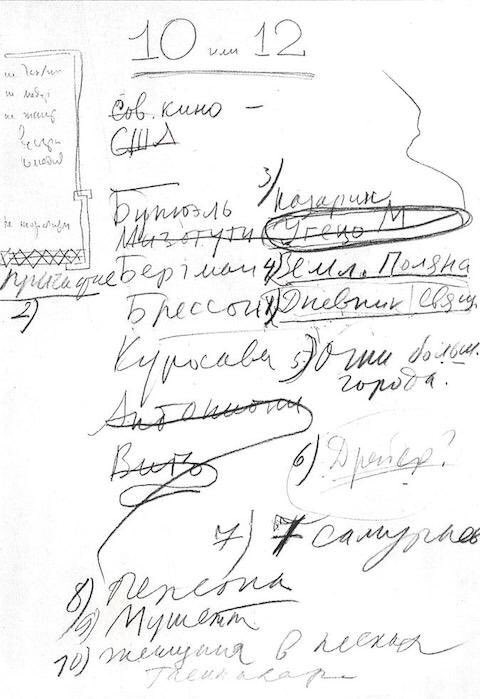 10 или 12
Сов. кино –
США
3) Назарин
Бунюэль
Мизогути Угецу М
Причастие Бергман 4) Земл. Поляна
2) Брессон 1) Дневник свящ.
Куросава 5) Огни больш.
города.
Антониони
Виго
6) Дрейер?
7) 7 самураев
8) Персона
9) Мушетт.
10) Женщина в песках